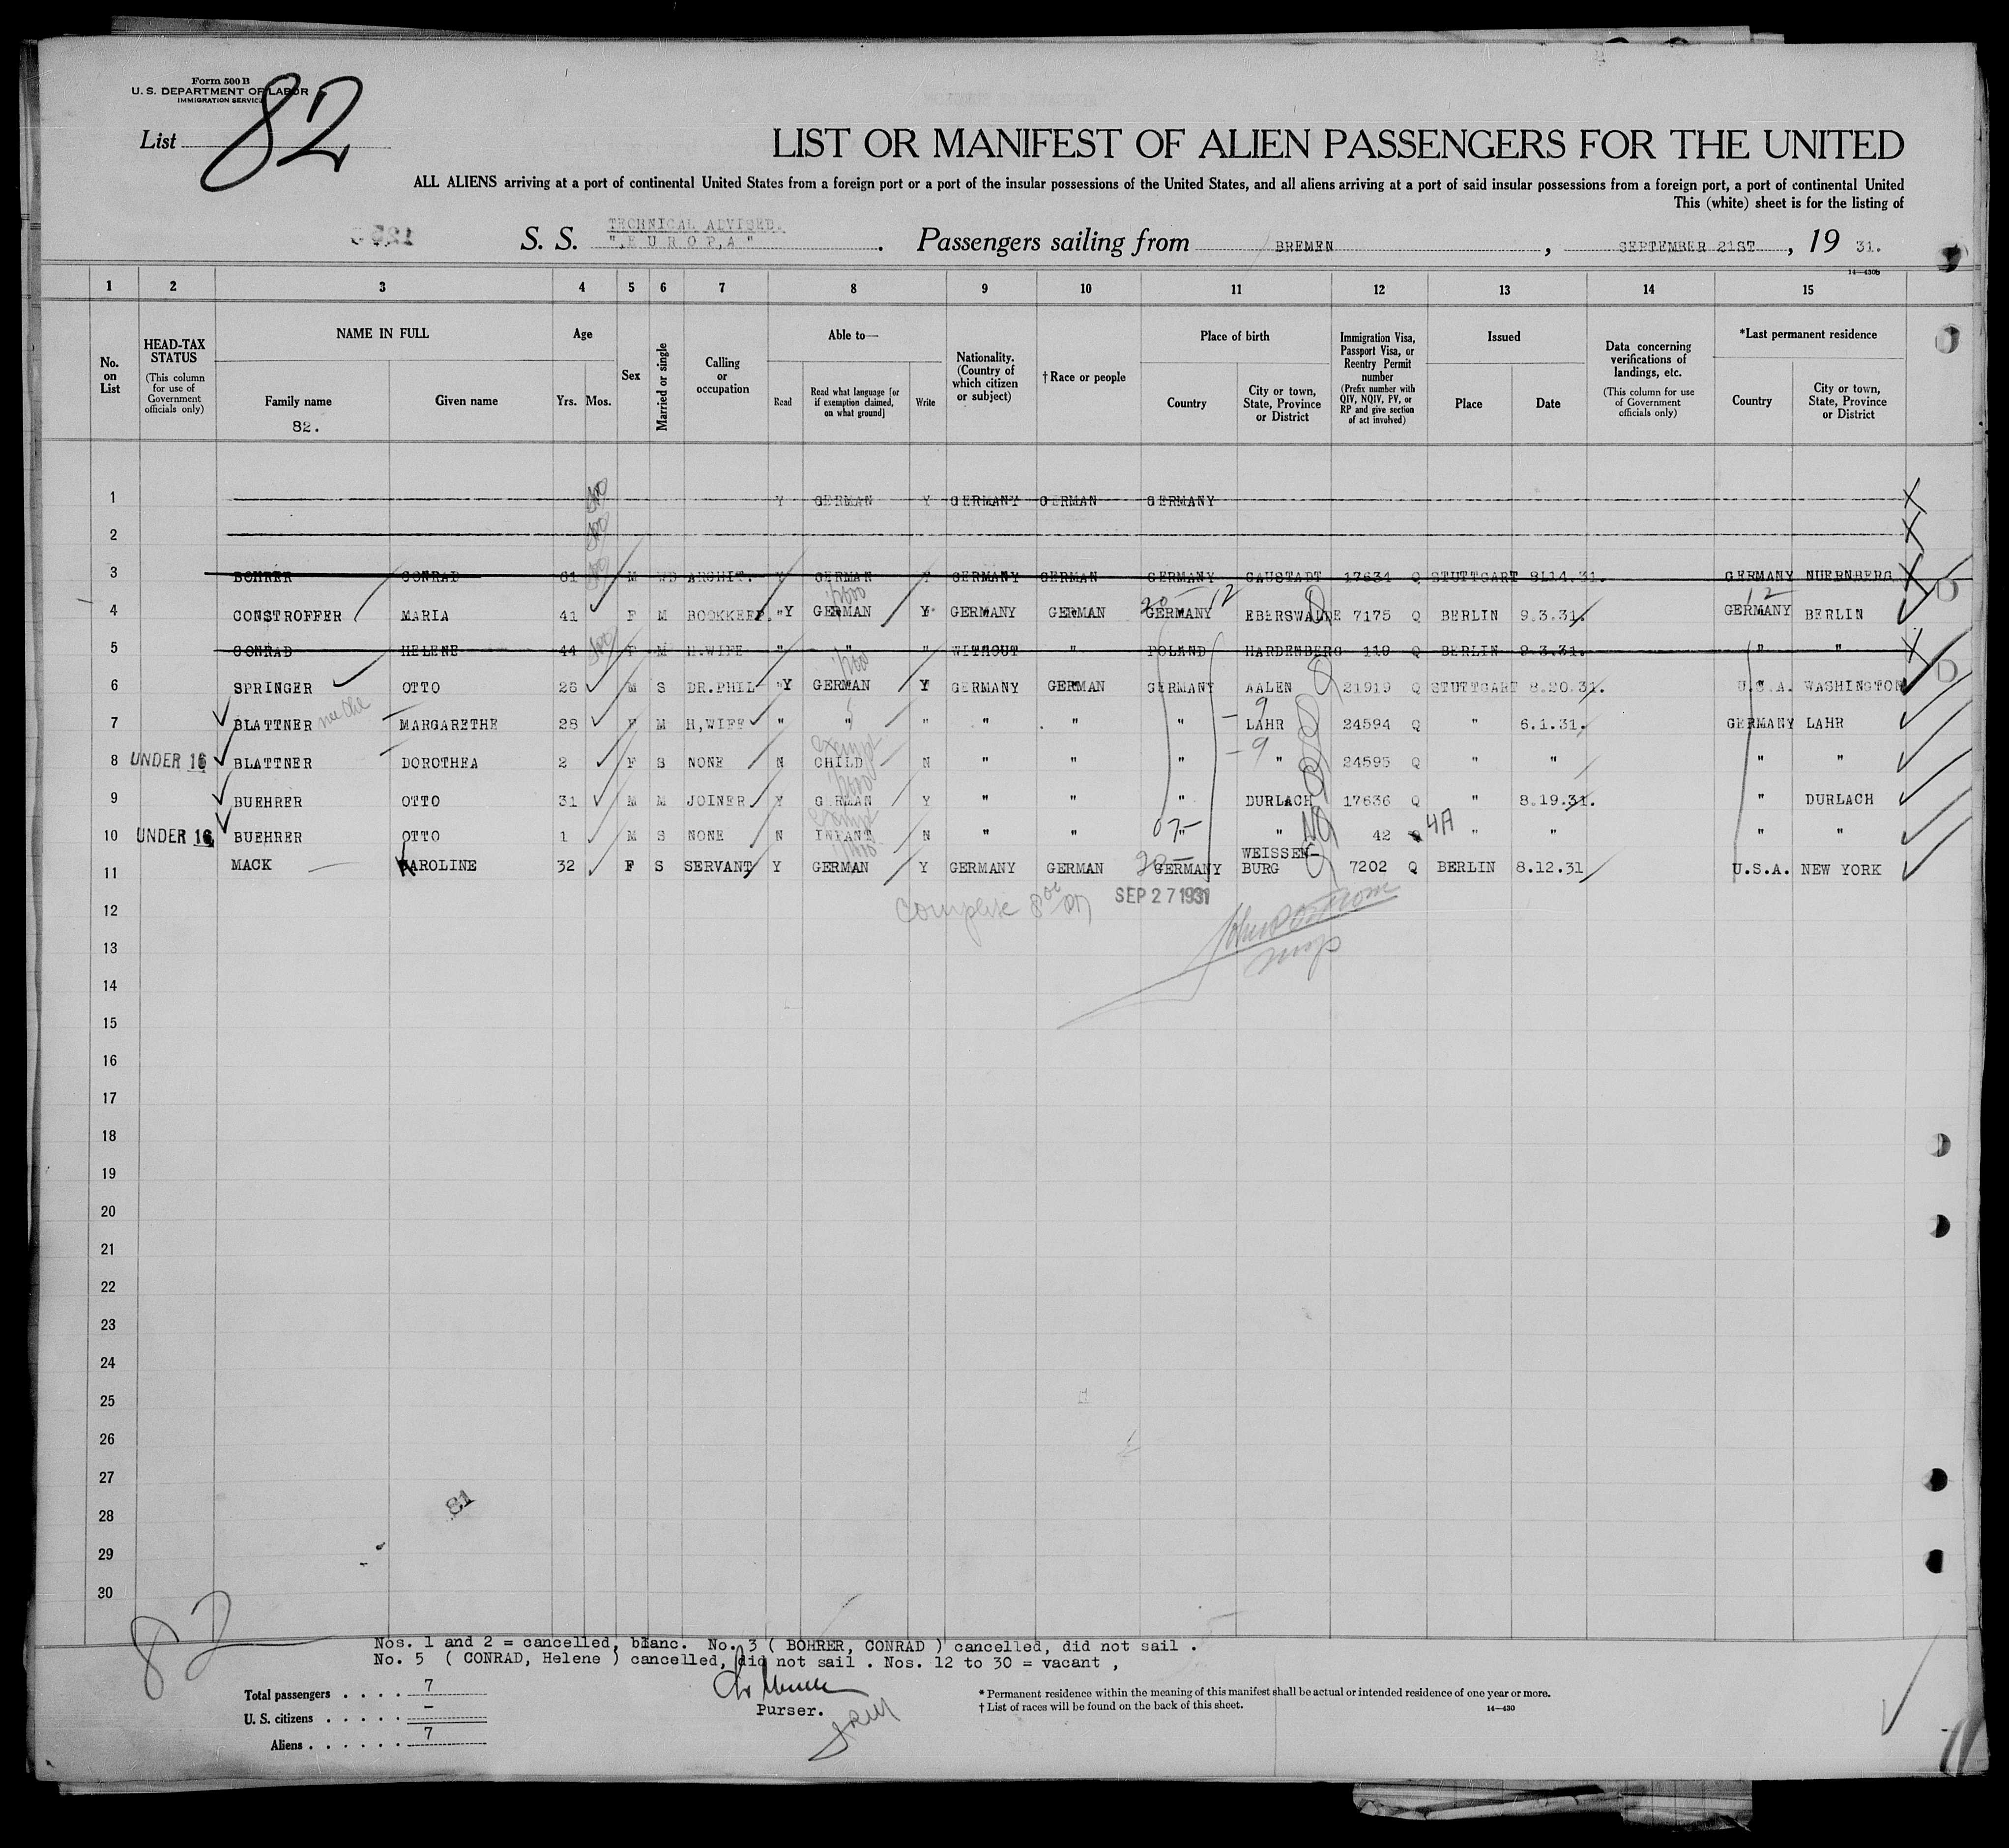 Form 500 B
U. S. DEPARTMENT OF LABOR
IMMIGRATION SERVICE
List 82
LIST OR MANIFEST OF ALIEN PASSENGERS FOR THE UNITED
ALL ALIENS arriving at a port of continental United States from a foreign port or a port of the insular possessions of the United States, and all aliens arriving at a port of said insular possessions from a foreign port, a port of continental United
This (white) sheet is for the listing of
TECHNICAL ADVISED.
S. S. "EUROPA". Passengers sailing from BREMEN, SEPTEMBER 21ST, 19 31.
14—430b
1 2 3 4 5 6 7 8 9 10 11 12 13 14 15
No. on List
HEAD-TAX STATUS (This column for use of Government officials only)
NAME IN FULL
Family name
82.
Given name
Age
Yrs. Mos.
Sex
Married or single
Calling or occupation
Able to—
Read
Read what language [or if exemption claimed, on what ground]
Write
Nationality. (Country of which citizen or subject)
† Race or people
Place of birth
Country
City or town, State, Province or District
Immigration Visa, Passport Visa, or Reentry Permit number (Prefix number with QIV, NQIV, PV, or RP and give section of act involved)
Issued
Place
Date
Data concerning verifications of landings, etc. (This column for use of Government officials only)
*Last permanent residence
Country
City or town, State, Province or District
1 Y GERMAN Y GERMANY GERMAN GERMANY
2
3 BOHRER CONRAD 61 M WD ARCHIT. Y GERMAN Y GERMANY GERMAN GERMANY GAUSTADT 17634 Q STUTTGART 8.14.31. GERMANY NUERNBERG
4 CONSTROFFER MARIA 41 F M BOOKKEEP. Y GERMAN Y GERMANY GERMAN GERMANY EBERSWALDE 7175 Q BERLIN 9.3.31. GERMANY BERLIN
5 CONRAD HELENE 44 F M H.WIFE " " " WITHOUT POLAND HARDENBERG 119 Q BERLIN 9.3.31. " "
6 SPRINGER OTTO 26 M S DR.PHIL Y GERMAN Y GERMANY GERMAN GERMANY AALEN 21919 Q STUTTGART 8.20.31. U.S.A. WASHINGTON
7 BLATTNER MARGARETHE 28 F M H,WIFE " " " " " " LAHR 24594 Q " 6.1.31. GERMANY LAHR
8 UNDER 16 BLATTNER DOROTHEA 2 F S NONE N CHILD N " " " " 24595 Q " " " "
9 BUEHRER OTTO 31 M M JOINER Y GERMAN Y " " " DURLACH 17636 Q " 8.19.31. " DURLACH
10 UNDER 16 BUEHRER OTTO 1 M S NONE N INFANT N " " " " 42 Q 4A " " " "
11 MACK KAROLINE 32 F S SERVANT Y GERMAN Y GERMANY GERMAN GERMANY WEISSEN-BURG 7202 Q BERLIN 8.12.31 U.S.A. NEW YORK
12 SEP 27 1931
13
14
15
16
17
18
19
20
21
22
23
24
25
26
27
81
28
29
30
82
Nos. 1 and 2 = cancelled, blanc. No. 3 ( BOHRER, CONRAD ) cancelled, did not sail .
No. 5 ( CONRAD, Helene ) cancelled, did not sail . Nos. 12 to 30 = vacant ,
Total passengers . . . . 7
U. S. citizens . . . . . –
Aliens . . . . . . 7
Purser.
* Permanent residence within the meaning of this manifest shall be actual or intended residence of one year or more.
† List of races will be found on the back of this sheet.
14—430